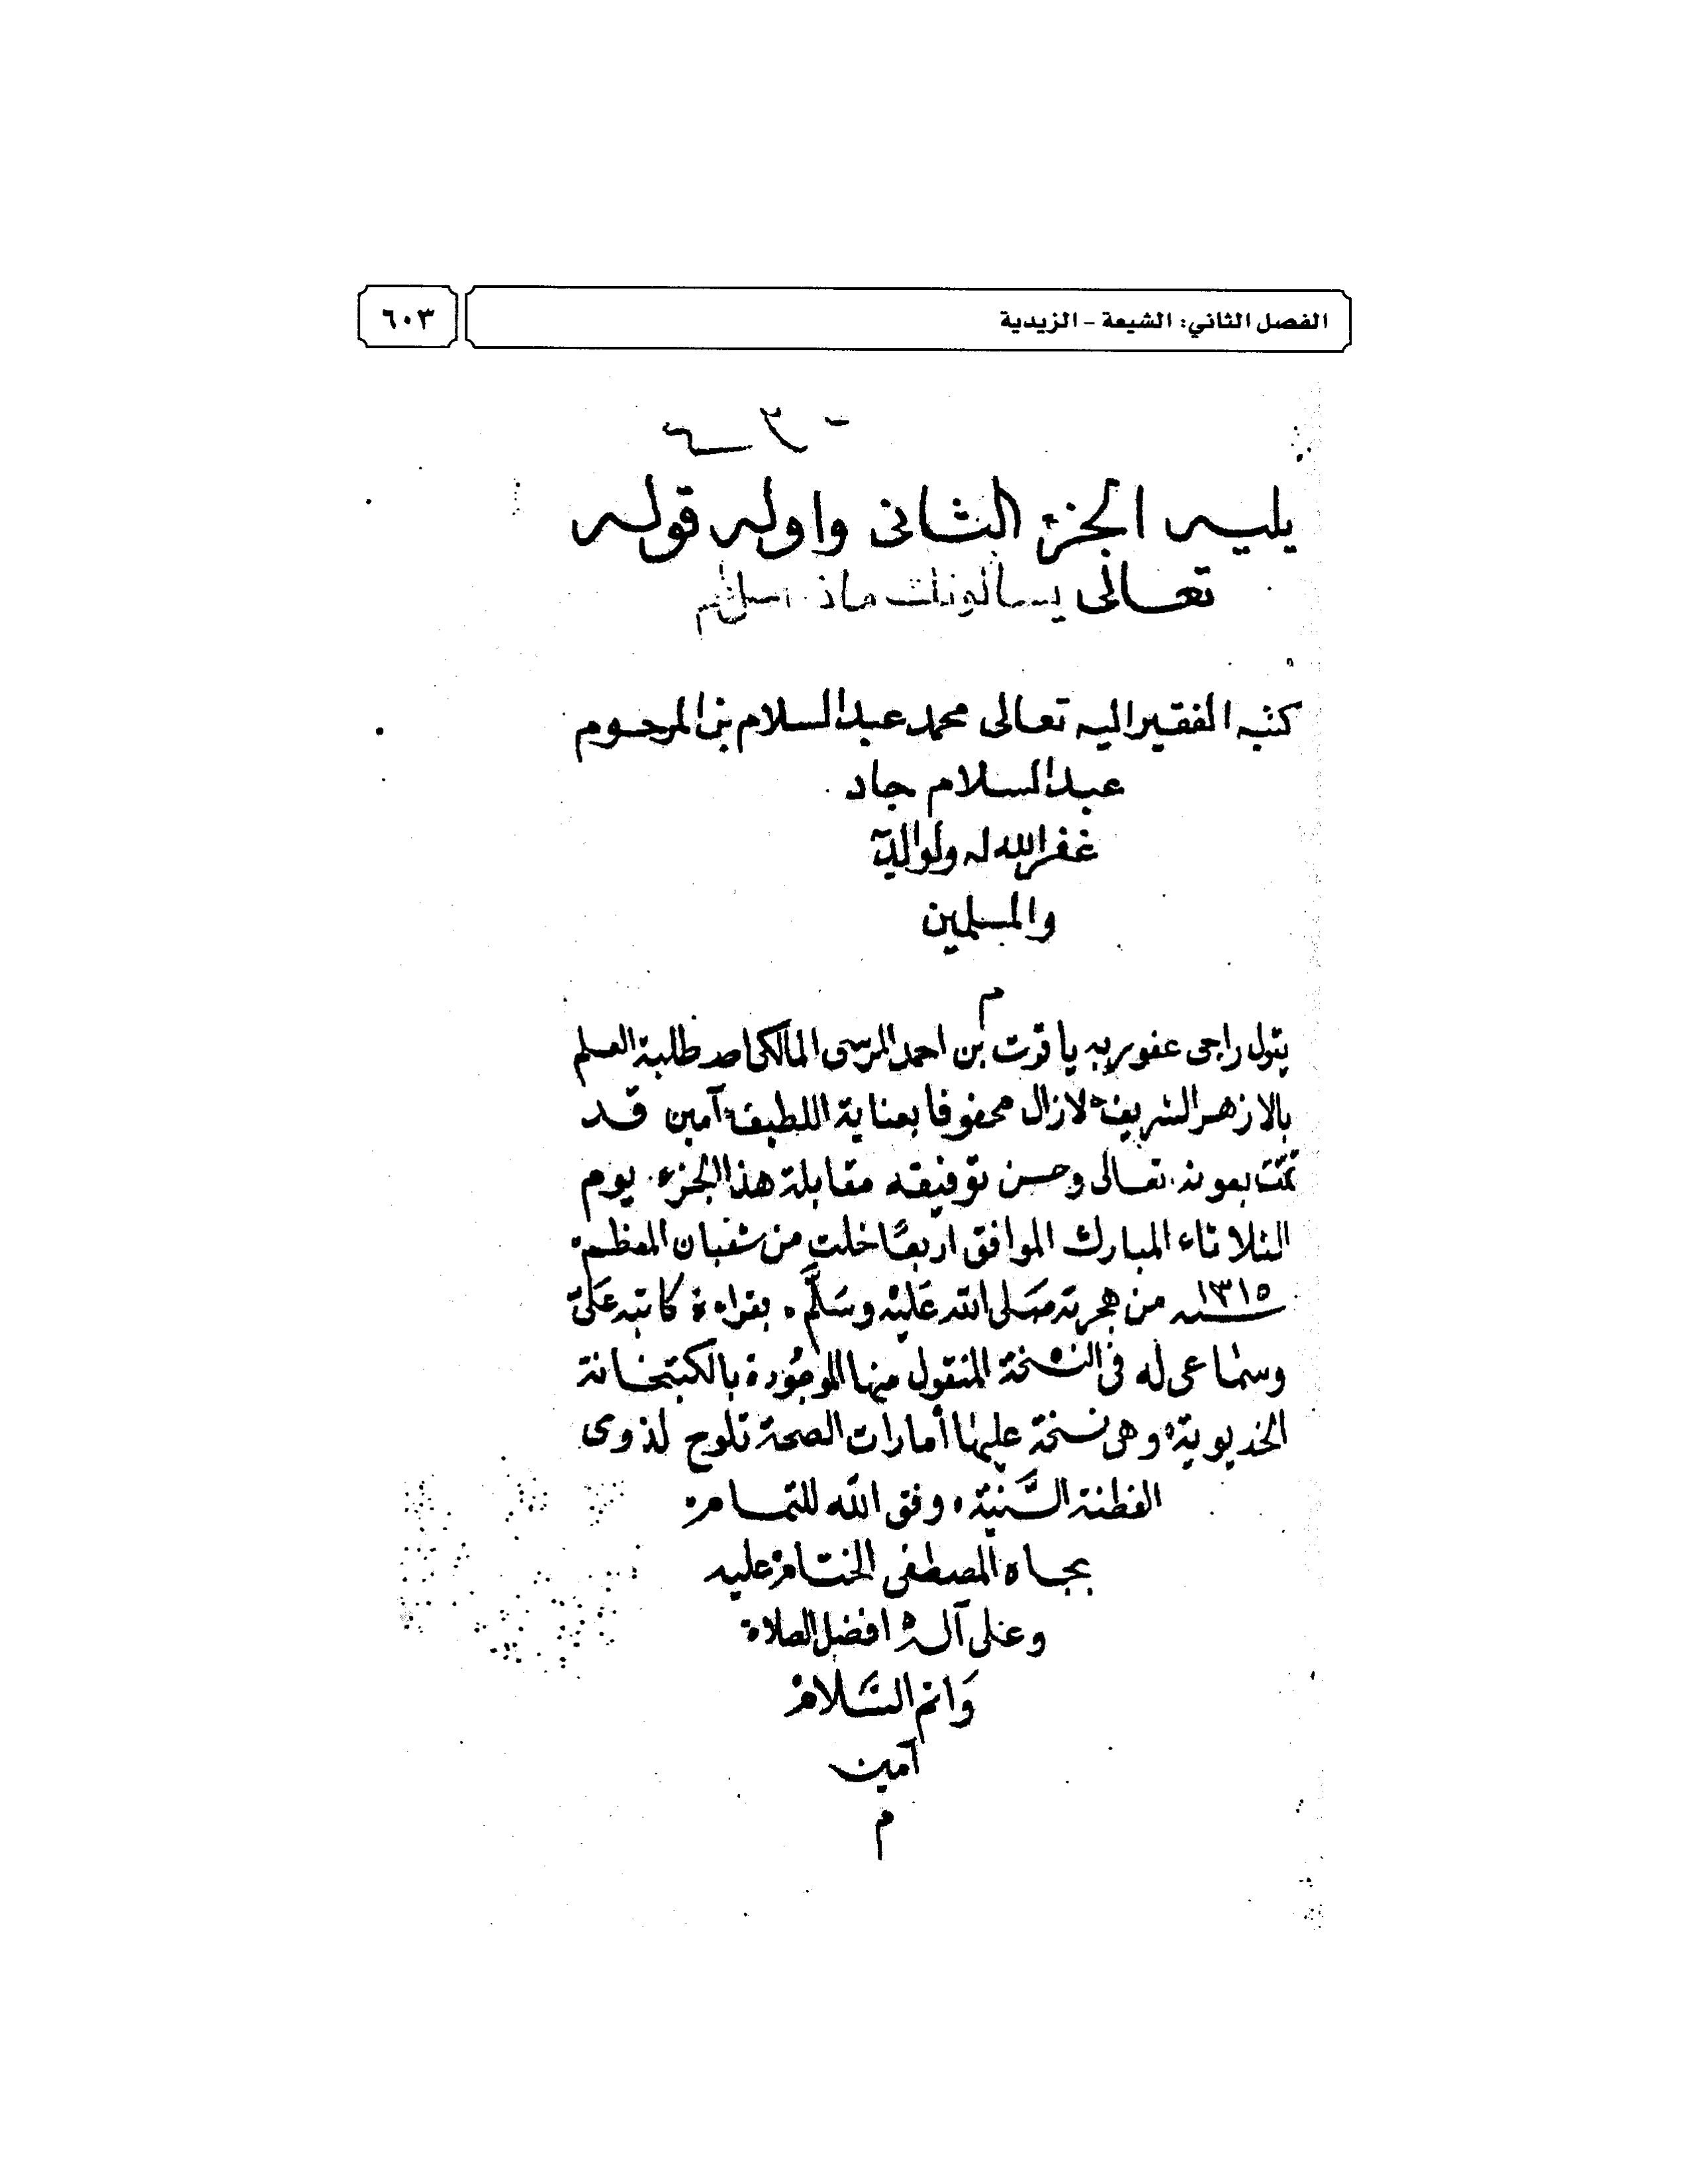 الفصل الثاني: الشيعة - الزيدية
٦٠٣
يليه الجزء الثانى واوله قوله
تعالى يسالونك ماذ احل لهم
كتبه الفقير اليه تعالى محمد عبد السلام بن المرحوم
عبد السلام جاد
غفر الله له ولوالديه
والمسلمين
م
يقول راجى عفو ربه ياقوت بن احمد المرسى المالكى احد طلبة العلم
بالازهر الشريف لازال محفوفا بعناية اللطيف آمين قد
تمّت بعونه تعالى وحسن توفيقه مقابلة هذا الجزء يوم
الثلاثاء المبارك الموافق اربعًا خلت من شعبان المعظم
سنه ١٣١٥ من هجرته صَلى الله عَليه وسَلَّم بقراءة كاتبه عَلىّ
وسماعى له فى النسخة المنقول منها الموجُودة بالكتبخانة
الخديوية وهى نسخة عليها أمارات الصحة تلوح لذوى
الفطنة السَّنية وفق الله للتمام
بجاه المصطفى الختام عليه
وعلى آله افضل الصلاة
وَاتم السَّلام
آمين
م